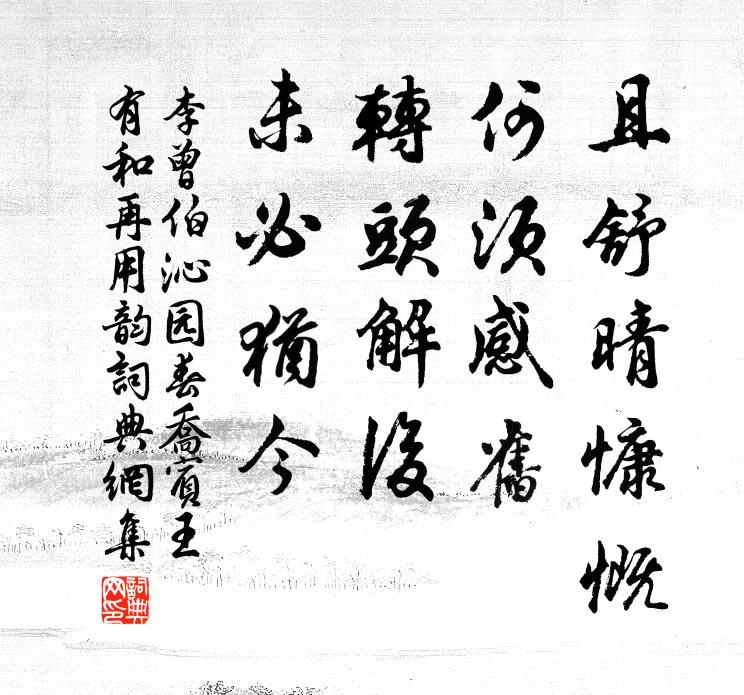 且舒晴慷慨
何須感舊
轉頭解後
未必猶今
李曾伯沁园春喬賓王
有和再用韵詞典網集
詞典
网印